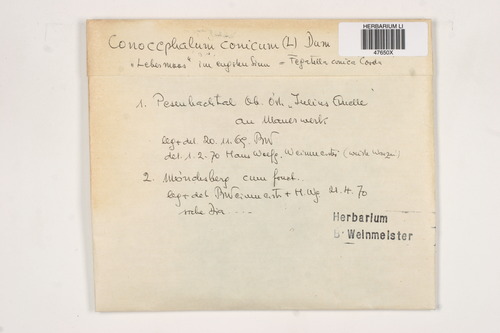 HERBARIUM LI
47650X
Conocephalum conicum (L) Dum
"Lebermoos" im engsten Sinn = Fegatella conica Corda
1. Pesenbachtal Ob. Öst. "Julius Quelle"
an Mauerwerk
leg + det 20. 11. 69. BW
det. 1. 2. 70 Hans Wolfg. Weinmeister
2. Mündelsberg cum fruct.
leg + det BWeinmeister + H. Wg 21. 4. 70
siehe Dia ---
Herbarium
B. Weinmeister